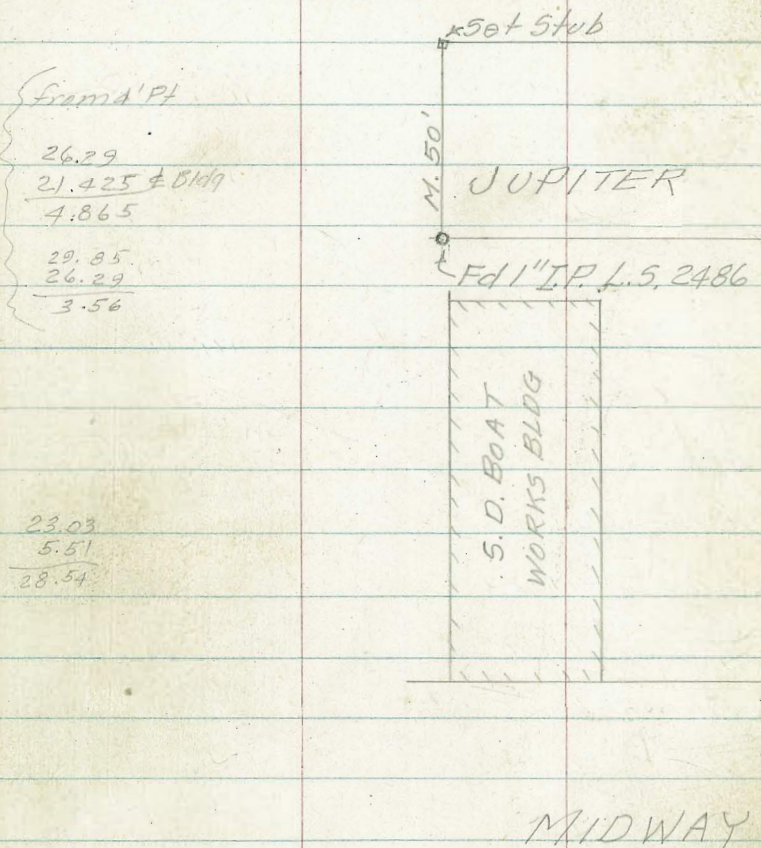 Set Stub
from 4' Pt
26.29
21.425 ₵ Bldg
4.865
29.85
26.29
3.56
M. 50'
JUPITER
Fd 1" I.P. L.S. 2486
S. D. BOAT
WORKS BLDG
23.03
5.51
28.54
MIDWAY